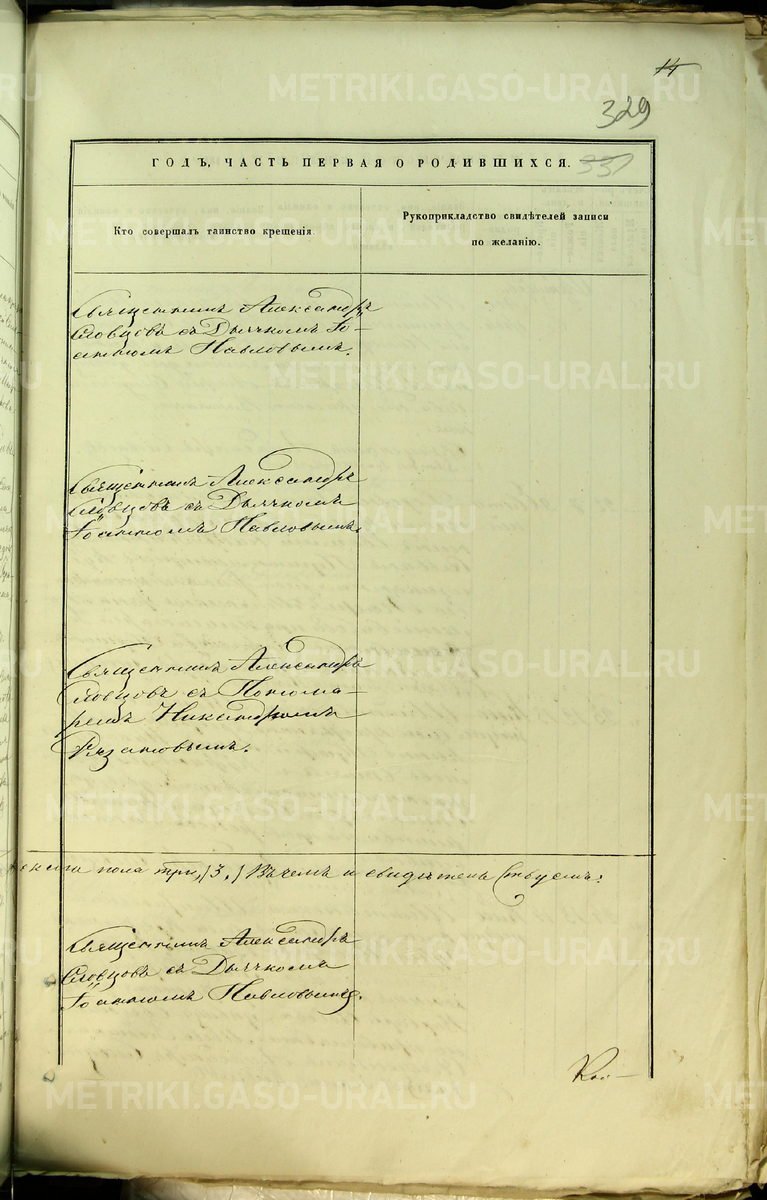 14
329
ГОДЪ, ЧАСТЬ ПЕРВАЯ О РОДИВШИХСЯ.
331
Кто совершалъ таинство крещенія.
Рукоприкладство свидѣтелей записи
по желанію.
Священникъ Александръ
Словцовъ съ Дьячкомъ Іо-
анномъ Павловымъ.
Священникъ Александръ
Словцовъ съ Дьячкомъ
Іоанномъ Павловымъ.
Священникъ Александръ
Словцовъ съ Понома-
ремъ Никандромъ
Рязановымъ.
пола три, (3,) Въ чемъ и свидѣтельствуемъ:
Священникъ Александръ
Словцовъ съ Дьячкомъ
Іоанномъ Павловымъ.
METRIKI.GASO-URAL.RU